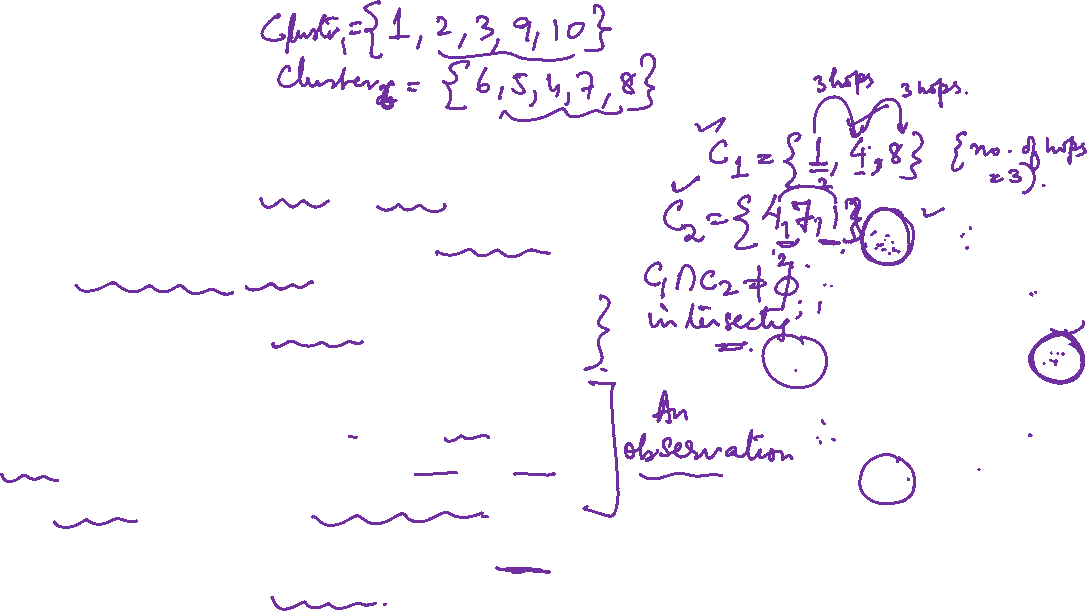 Cluster₁ = {1, 2, 3, 9, 10}
Cluster = {6, 5, 4, 7, 8}
3 hops 3 hops.
C₁ = {1, 4, 8} {no. of hops
= 3}.
2
C₂ = {4, 7, }
2
C₁ ∩ C₂ ≠ ϕ
intersecting
An
observation